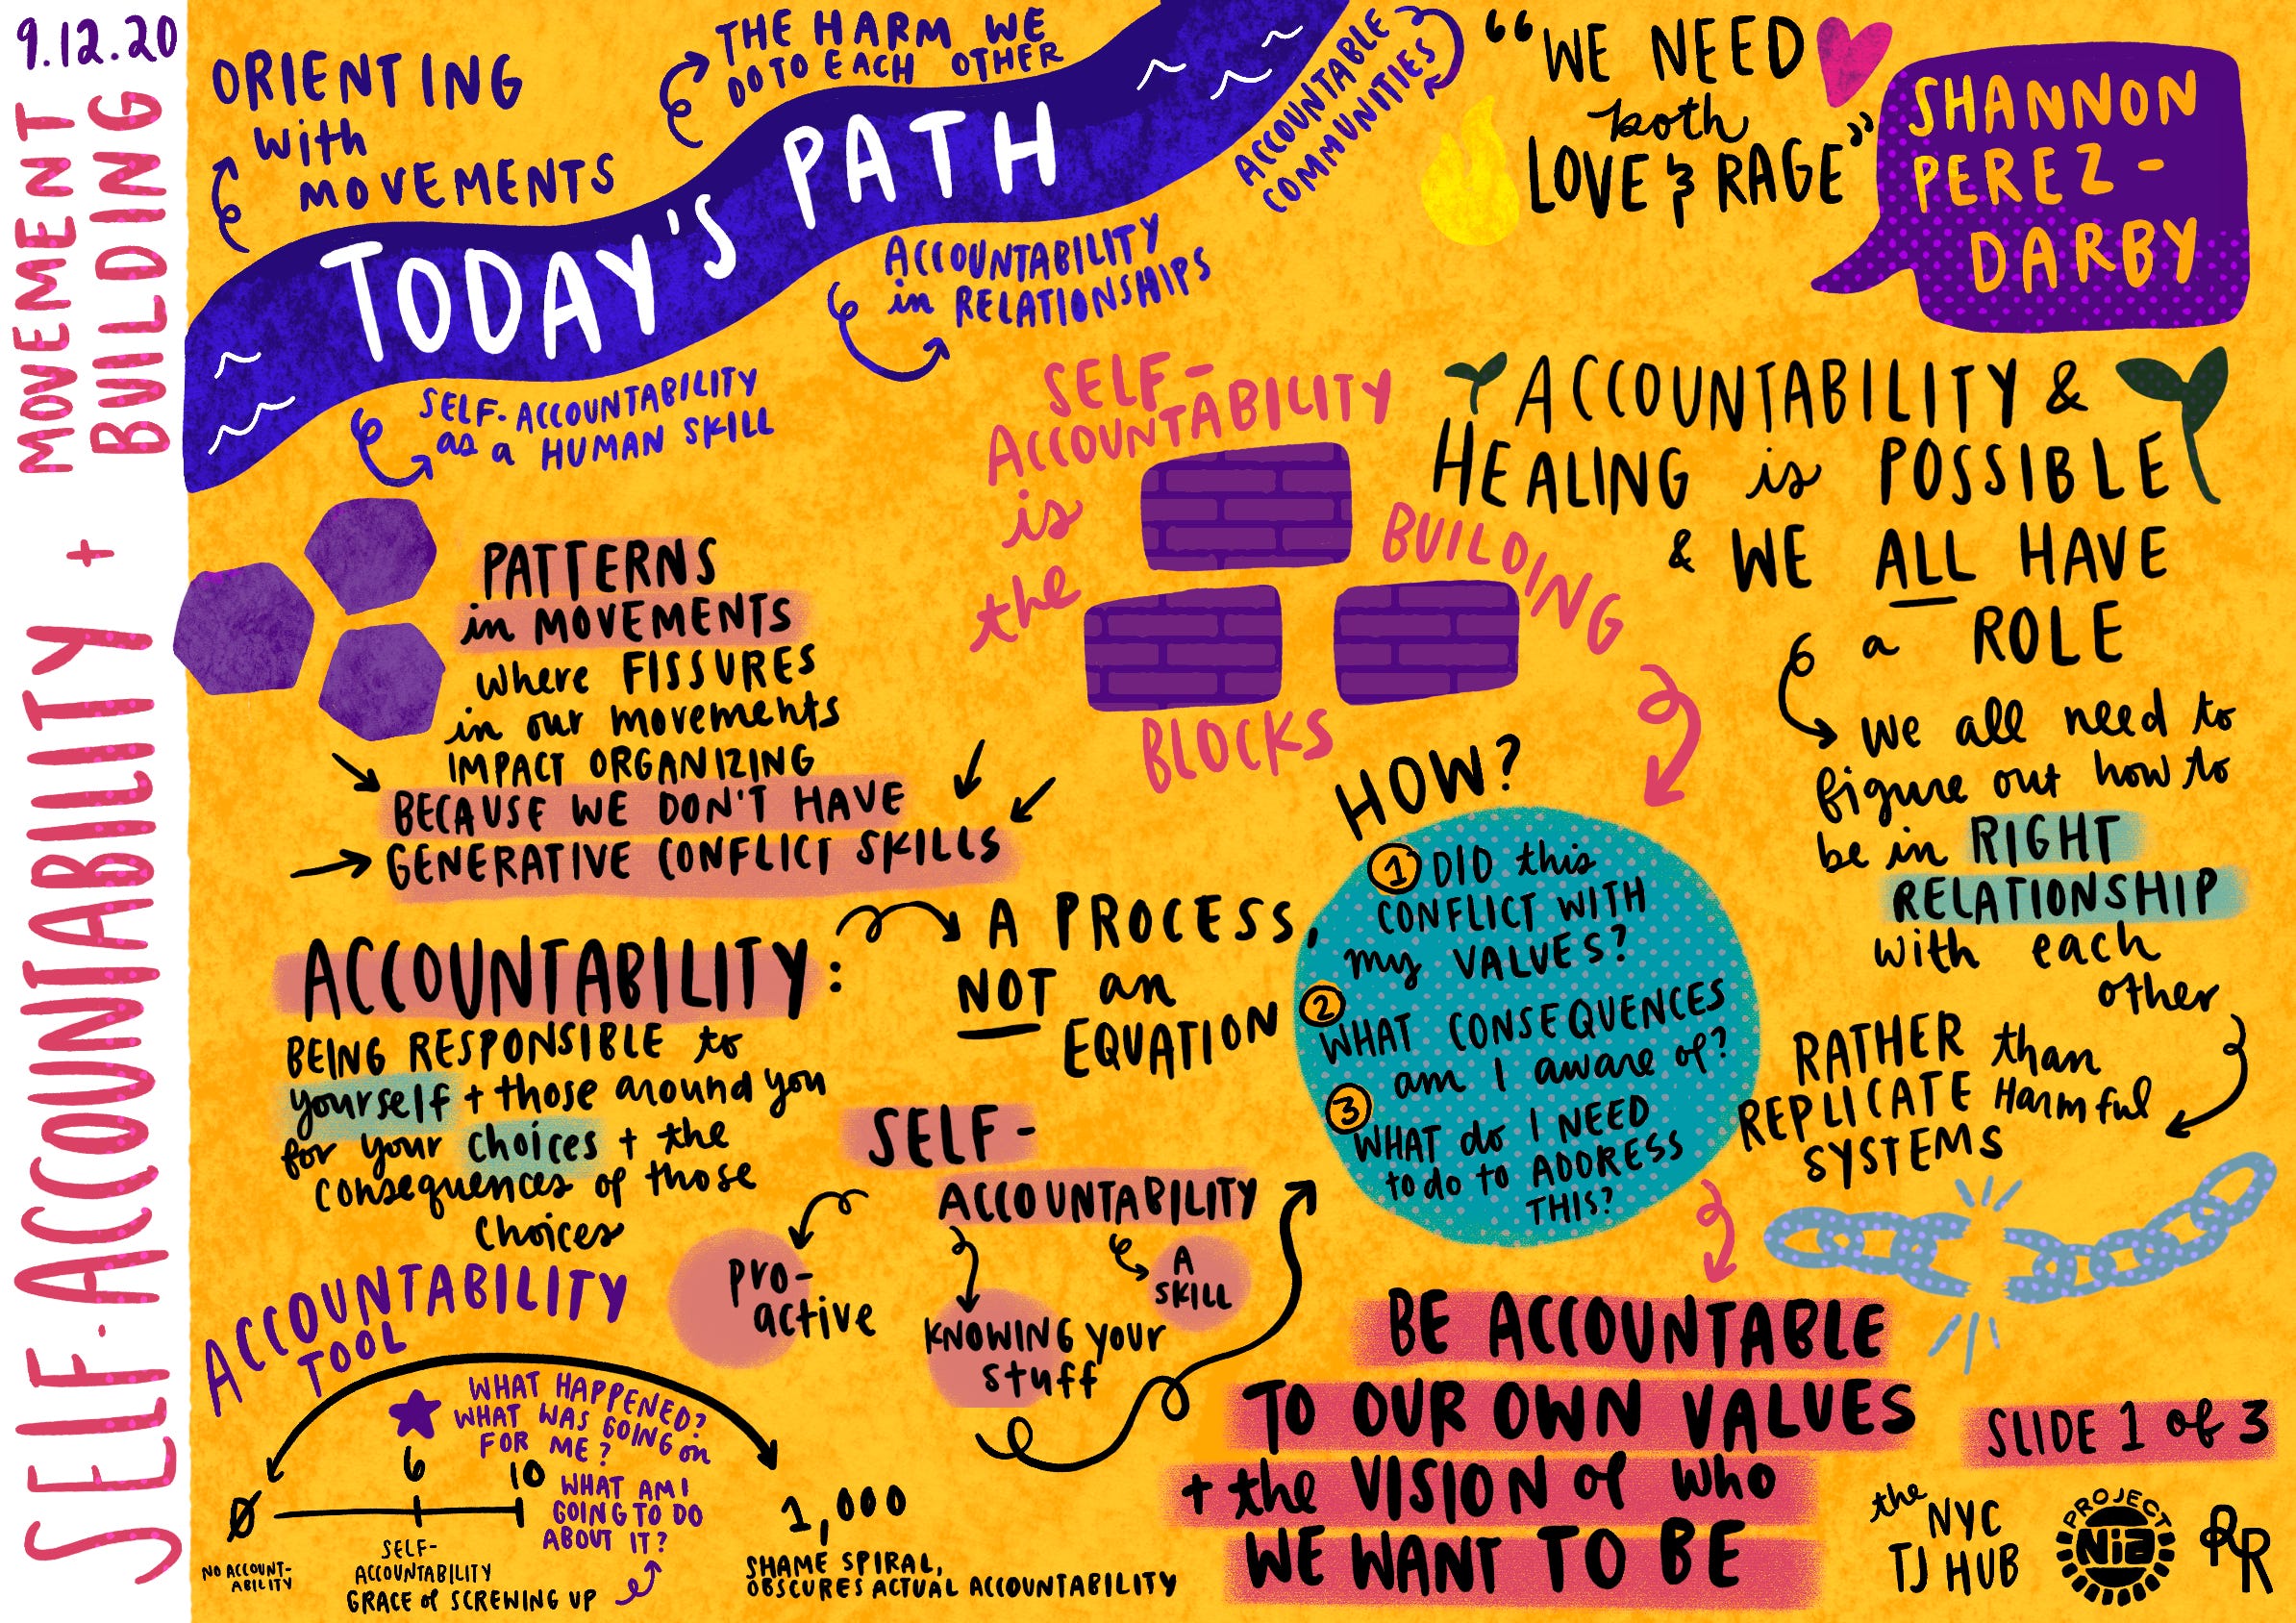 9.12.20
SELF-ACCOUNTABILITY + MOVEMENT
BUILDING
ORIENTING
with
MOVEMENTS
THE HARM WE
DO TO EACH OTHER
ACCOUNTABLE
COMMUNITIES
TODAY'S PATH
SELF-ACCOUNTABILITY
as a HUMAN SKILL
ACCOUNTABILITY
in RELATIONSHIPS
"WE NEED
both
LOVE & RAGE"
SHANNON
PEREZ-
DARBY
PATTERNS
in MOVEMENTS
where FISSURES
in our movements
IMPACT ORGANIZING
BECAUSE WE DON'T HAVE
GENERATIVE CONFLICT SKILLS
SELF-
ACCOUNTABILITY
is
the
BUILDING
BLOCKS
ACCOUNTABILITY &
HEALING is POSSIBLE
& WE ALL HAVE
a ROLE
we all need to
figure out how to
be in RIGHT
RELATIONSHIP
with each
other
RATHER than
REPLICATE Harmful
SYSTEMS
ACCOUNTABILITY:
BEING RESPONSIBLE to
yourself + those around you
for your choices + the
consequences of those
choices
A PROCESS,
NOT an
EQUATION
SELF-
ACCOUNTABILITY
pro-
active
KNOWING your
stuff
A
SKILL
HOW?
1 DID this
CONFLICT WITH
my VALUES?
2
WHAT CONSEQUENCES
am I aware of?
3
WHAT do I NEED
to do to ADDRESS
THIS?
BE ACCOUNTABLE
TO OUR OWN VALUES
+ the VISION of who
WE WANT TO BE
ACCOUNTABILITY
TOOL
WHAT HAPPENED?
WHAT WAS GOING on
FOR ME?
WHAT AM I
GOING TO DO
ABOUT IT?
0
6
10
1,000
NO ACCOUNT-
ABILITY
SELF-
ACCOUNTABILITY
GRACE of SCREWING UP
SHAME SPIRAL,
OBSCURES ACTUAL ACCOUNTABILITY
SLIDE 1 of 3
the NYC
TJ HUB
PROJECT
NiA
RR